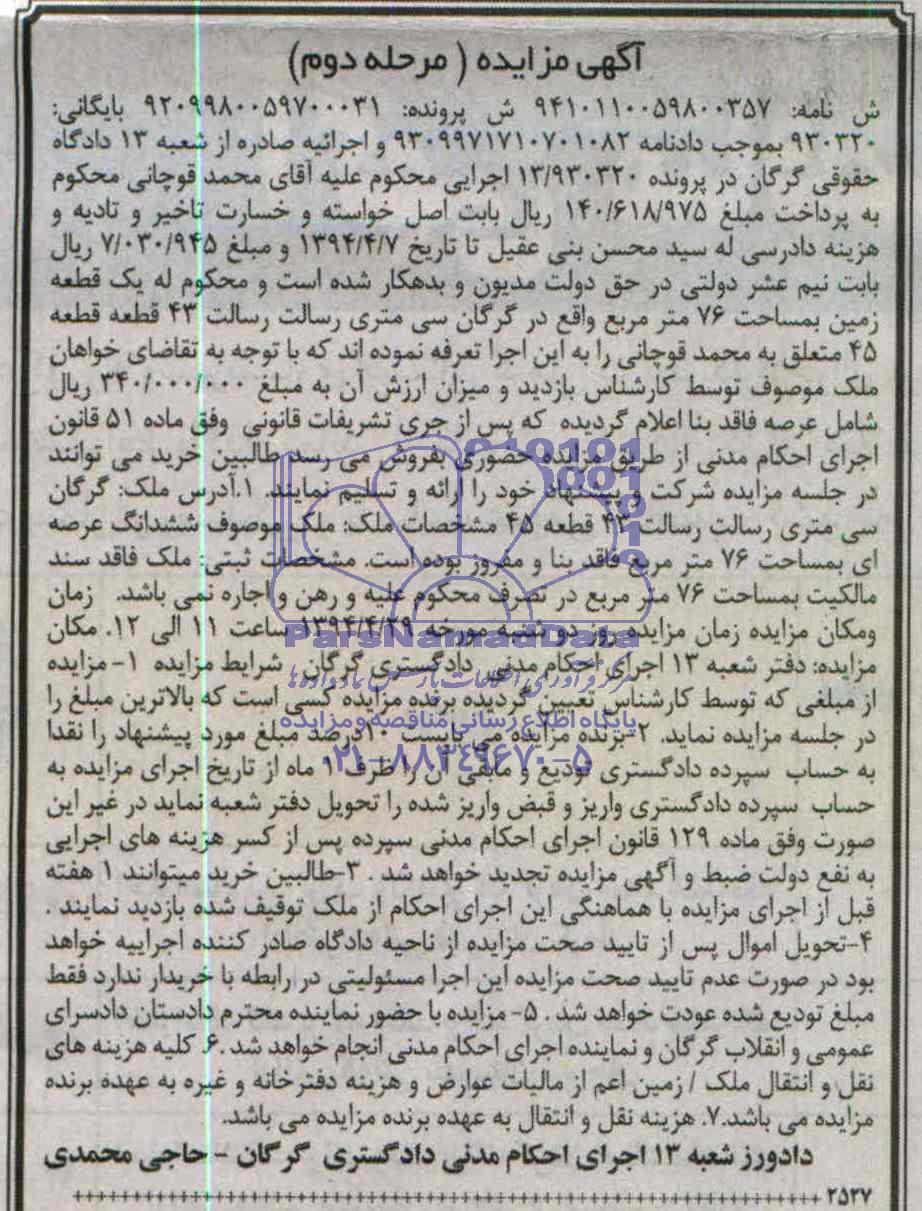 آگهی مزایده ( مرحله دوم)
ش نامه: ۹۴۱۰۱۱۰۰۵۹۸۰۰۳۵۷ ش پرونده: ۹۲۰۹۹۸۰۰۵۹۷۰۰۰۳۱ بایگانی:
۹۳۰۳۲۰ بموجب دادنامه ۹۳۰۹۹۷۱۷۱۰۷۰۱۰۸۲ و اجرائیه صادره از شعبه ۱۳ دادگاه
حقوقی گرگان در پرونده ۱۳/۹۳۰۳۲۰ اجرایی محکوم علیه آقای محمد قوچانی محکوم
به پرداخت مبلغ ۱۴۰/۶۱۸/۹۷۵ ریال بابت اصل خواسته و خسارت تاخیر و تادیه و
هزینه دادرسی له سید محسن بنی عقیل تا تاریخ ۱۳۹۴/۴/۷ و مبلغ ۷/۰۳۰/۹۴۵ ریال
بابت نیم عشر دولتی در حق دولت مدیون و بدهکار شده است و محکوم له یک قطعه
زمین بمساحت ۷۶ متر مربع واقع در گرگان سی متری رسالت رسالت ۴۳ قطعه قطعه
۴۵ متعلق به محمد قوچانی را به این اجرا تعرفه نموده اند که با توجه به تقاضای خواهان
ملک موصوف توسط کارشناس بازدید و میزان ارزش آن به مبلغ ۳۴۰/۰۰۰/۰۰۰ ریال
شامل عرصه فاقد بنا اعلام گردیده که پس از جری تشریفات قانونی وفق ماده ۵۱ قانون
اجرای احکام مدنی از طریق مزایده حضوری بفروش می رسد طالبین خرید می توانند
در جلسه مزایده شرکت و پیشنهاد خود را ارائه و تسلیم نمایند. ۱.آدرس ملک: گرگان
سی متری رسالت رسالت ۴۳ قطعه ۴۵ مشخصات ملک: ملک موصوف ششدانگ عرصه
ای بمساحت ۷۶ متر مربع فاقد بنا و مفروز بوده است. مشخصات ثبتی: ملک فاقد سند
مالکیت بمساحت ۷۶ متر مربع در تصرف محکوم علیه و رهن و اجاره نمی باشد. زمان
ومکان مزایده زمان مزایده روز دو شنبه مورخه ۱۳۹۴/۴/۲۹ ساعت ۱۱ الی ۱۲. مکان
ParsNamadData
مزایده: دفتر شعبه ۱۳ اجرای احکام مدنی دادگستری گرگان شرایط مزایده ۱- مزایده
از مبلغی که توسط کارشناس تعیین گردیده برنده مزایده کسی است که بالاترین مبلغ را
پایگاه اطلاع رسانی مناقصه و مزایده
در جلسه مزایده نماید. ۲-برنده مزایده می بایست ۱۰درصد مبلغ مورد پیشنهاد را نقدا
۰۲۱-۸۸۳۴۹۶۷۰-۵
به حساب سپرده دادگستری تودیع و مابقی آن را ظرف ۱ ماه از تاریخ اجرای مزایده به
حساب سپرده دادگستری واریز و قبض واریز شده را تحویل دفتر شعبه نماید در غیر این
صورت وفق ماده ۱۲۹ قانون اجرای احکام مدنی سپرده پس از کسر هزینه های اجرایی
به نفع دولت ضبط و آگهی مزایده تجدید خواهد شد . ۳-طالبین خرید میتوانند ۱ هفته
قبل از اجرای مزایده با هماهنگی این اجرای احکام از ملک توقیف شده بازدید نمایند .
۴-تحویل اموال پس از تایید صحت مزایده از ناحیه دادگاه صادر کننده اجراییه خواهد
بود در صورت عدم تایید صحت مزایده این اجرا مسئولیتی در رابطه با خریدار ندارد فقط
مبلغ تودیع شده عودت خواهد شد . ۵- مزایده با حضور نماینده محترم دادستان دادسرای
عمومی و انقلاب گرگان و نماینده اجرای احکام مدنی انجام خواهد شد .۶. کلیه هزینه های
نقل و انتقال ملک / زمین اعم از مالیات عوارض و هزینه دفترخانه و غیره به عهده برنده
مزایده می باشد.۷. هزینه نقل و انتقال به عهده برنده مزایده می باشد.
دادورز شعبه ۱۳ اجرای احکام مدنی دادگستری گرگان - حاجی محمدی
۲۵۲۷